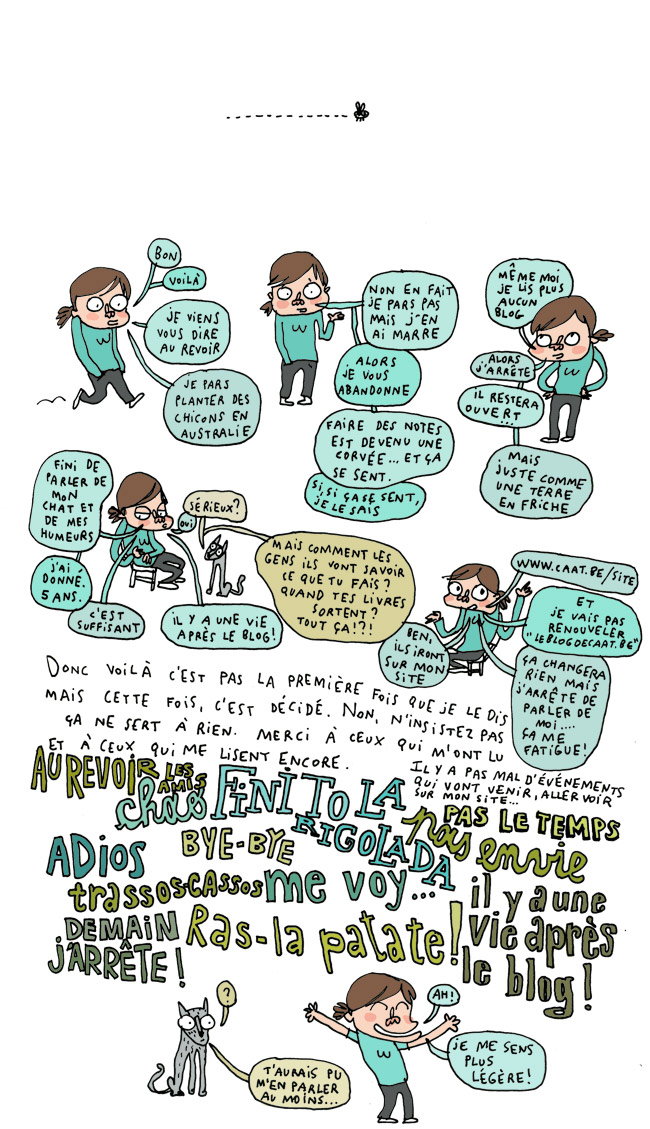 BON
VOILÀ
JE VIENS
VOUS DIRE
AU REVOIR
JE PARS
PLANTER DES
CHICONS EN
AUSTRALIE
NON EN FAIT
JE PARS PAS
MAIS J'EN
AI MARRE
ALORS
JE VOUS
ABANDONNE
FAIRE DES NOTES
EST DEVENU UNE
CORVÉE... ET ÇA
SE SENT.
SI, SI ÇA SE SENT,
JE LE SAIS
MÊME MOI
JE LIS PLUS
AUCUN
BLOG
ALORS
J'ARRÊTE
IL RESTERA
OUVERT...
MAIS
JUSTE COMME
UNE TERRE
EN FRICHE
FINI DE
PARLER DE
MON
CHAT ET
DE MES
HUMEURS
J'AI
DONNÉ.
5 ANS.
C'EST
SUFFISANT
SÉRIEUX?
OUI
IL Y A UNE VIE
APRÈS LE BLOG!
MAIS COMMENT LES
GENS ILS VONT SAVOIR
CE QUE TU FAIS?
QUAND TES LIVRES
SORTENT?
TOUT ÇA!?!
BEN,
ILS IRONT
SUR MON
SITE
WWW.CAAT.BE/SITE
ET
JE VAIS PAS
RENOUVELER
"LEBLOGDECAAT.BE"
ÇA CHANGERA
RIEN MAIS
J'ARRÊTE DE
PARLER DE
MOI....
ÇA ME
FATIGUE!
DONC VOILÀ C'EST PAS LA PREMIÈRE FOIS QUE JE LE DIS
MAIS CETTE FOIS, C'EST DÉCIDÉ. NON, N'INSISTEZ PAS
ÇA NE SERT À RIEN. MERCI À CEUX QUI M'ONT LU
ET À CEUX QUI ME LISENT ENCORE.
IL Y A PAS MAL D'ÉVÉNEMENTS
QUI VONT VENIR, ALLER VOIR
SUR MON SITE...
AU REVOIR LES AMIS
chas
FINITO LA
RIGOLADA
PAS LE TEMPS
pas envie
ADIOS
BYE-BYE
trassos-cassos
me voy...
il y a une
vie après
le blog!
DEMAIN
J'ARRÊTE!
Ras-la patate!
?
T'AURAIS PU
M'EN PARLER
AU MOINS...
AH!
JE ME SENS
PLUS
LÉGÈRE!